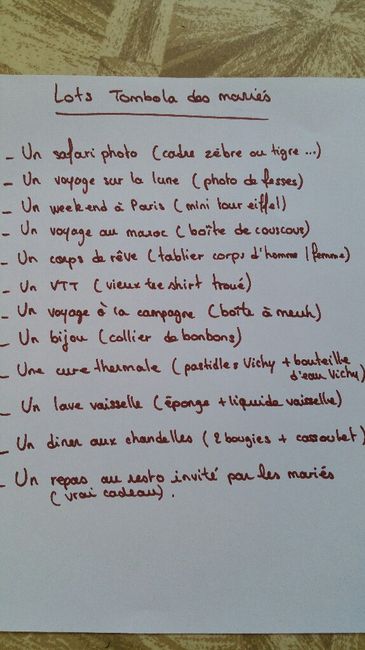 Lots Tombola des mariés
- Un safari photo (cadre zèbre ou tigre ...)
- Un voyage sur la lune (photo de fesses)
- Un week end à Paris (mini tour eiffel)
- Un voyage au maroc (boîte de couscous)
- Un corps de rêve (tablier corps d'homme / femme)
- Un VTT (vieux tee shirt troué)
- Un voyage à la campagne (boîte à meuh)
- Un bijou (collier de bonbons)
- Une cure thermale (pastilles Vichy + bouteille
d'eau Vichy)
- Un lave vaisselle (éponge + liquide vaisselle)
- Un diner aux chandelles (2 bougies + cassoulet)
- Un repas au resto invité par les mariés
(vrai cadeau).